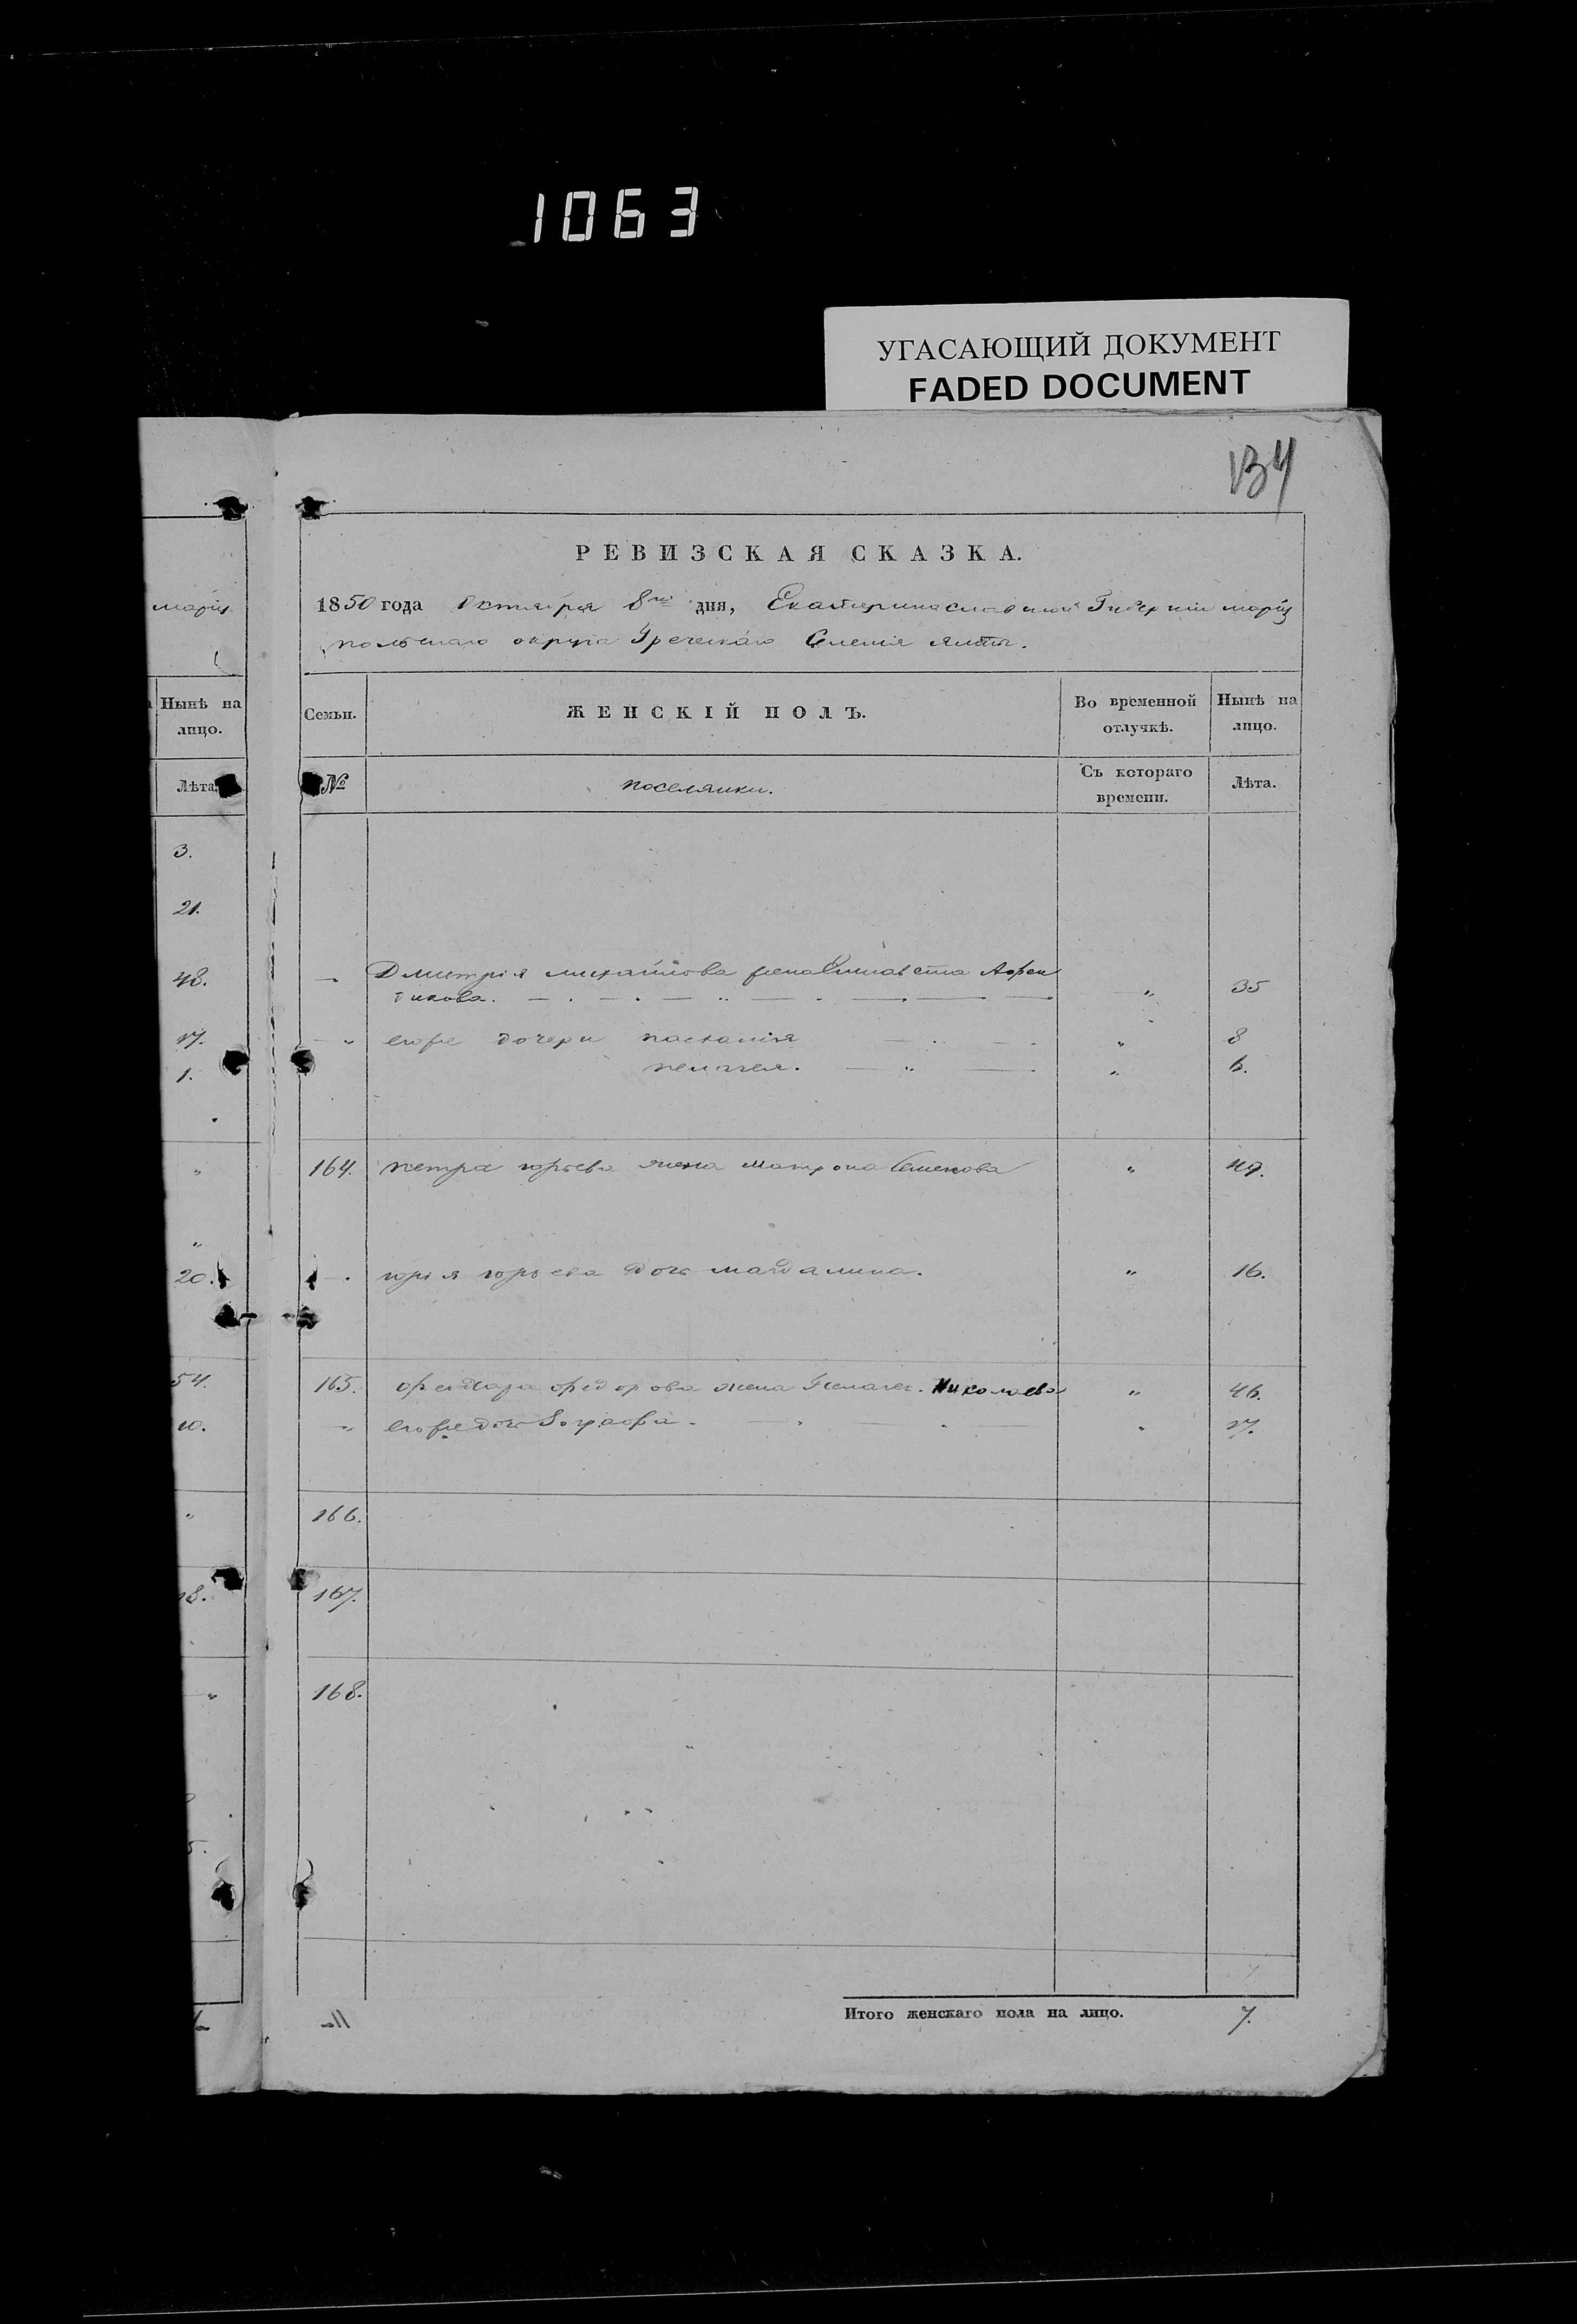 1063
УГАСАЮЩИЙ ДОКУМЕНТ
FADED DOCUMENT
134
РЕВИЗСКАЯ СКАЗКА.
марiу
1850 года Октября 8го дня, Екатеринославской Губернiи марiу
польскаго округа Греческаго Селенiя Ялты.
Нынѣ на
лицо.
Лѣта
Семьи.
ЖЕНСКIЙ ПОЛЪ.
Во временной
отлучкѣ.
Нынѣ на
лицо.
№
поселянки.
Съ котораго
времени.
Лѣта.
3.
21.
48.
Дмитрiя михайлова жена Елисавета
тикова. 35
17.
его же дочери настасiя 8
1.
пелагея. 6.
164. петра юрьева жена матрона Семенова 49.
20.
юрья юрьева дочь магдалина. 16.
54.
165. феодора федорова жена Пелагея Николаева 46.
10.
его же дочь 17.
166.
18.
167.
168.
Итого женскаго пола на лицо. 7.